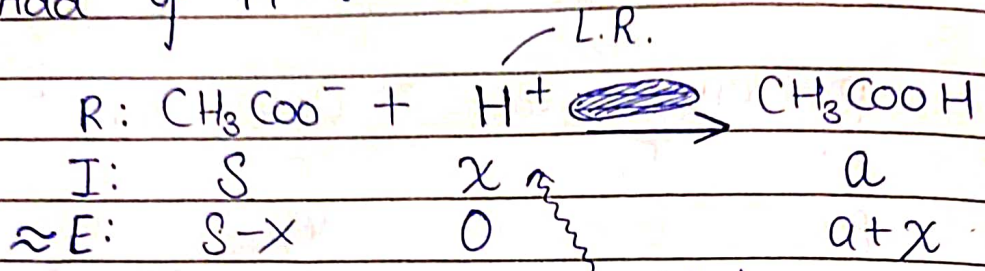 L.R.
R: CH₃COO⁻ + H⁺ → CH₃COOH
I: S x a
≈E: S-x 0 a+x